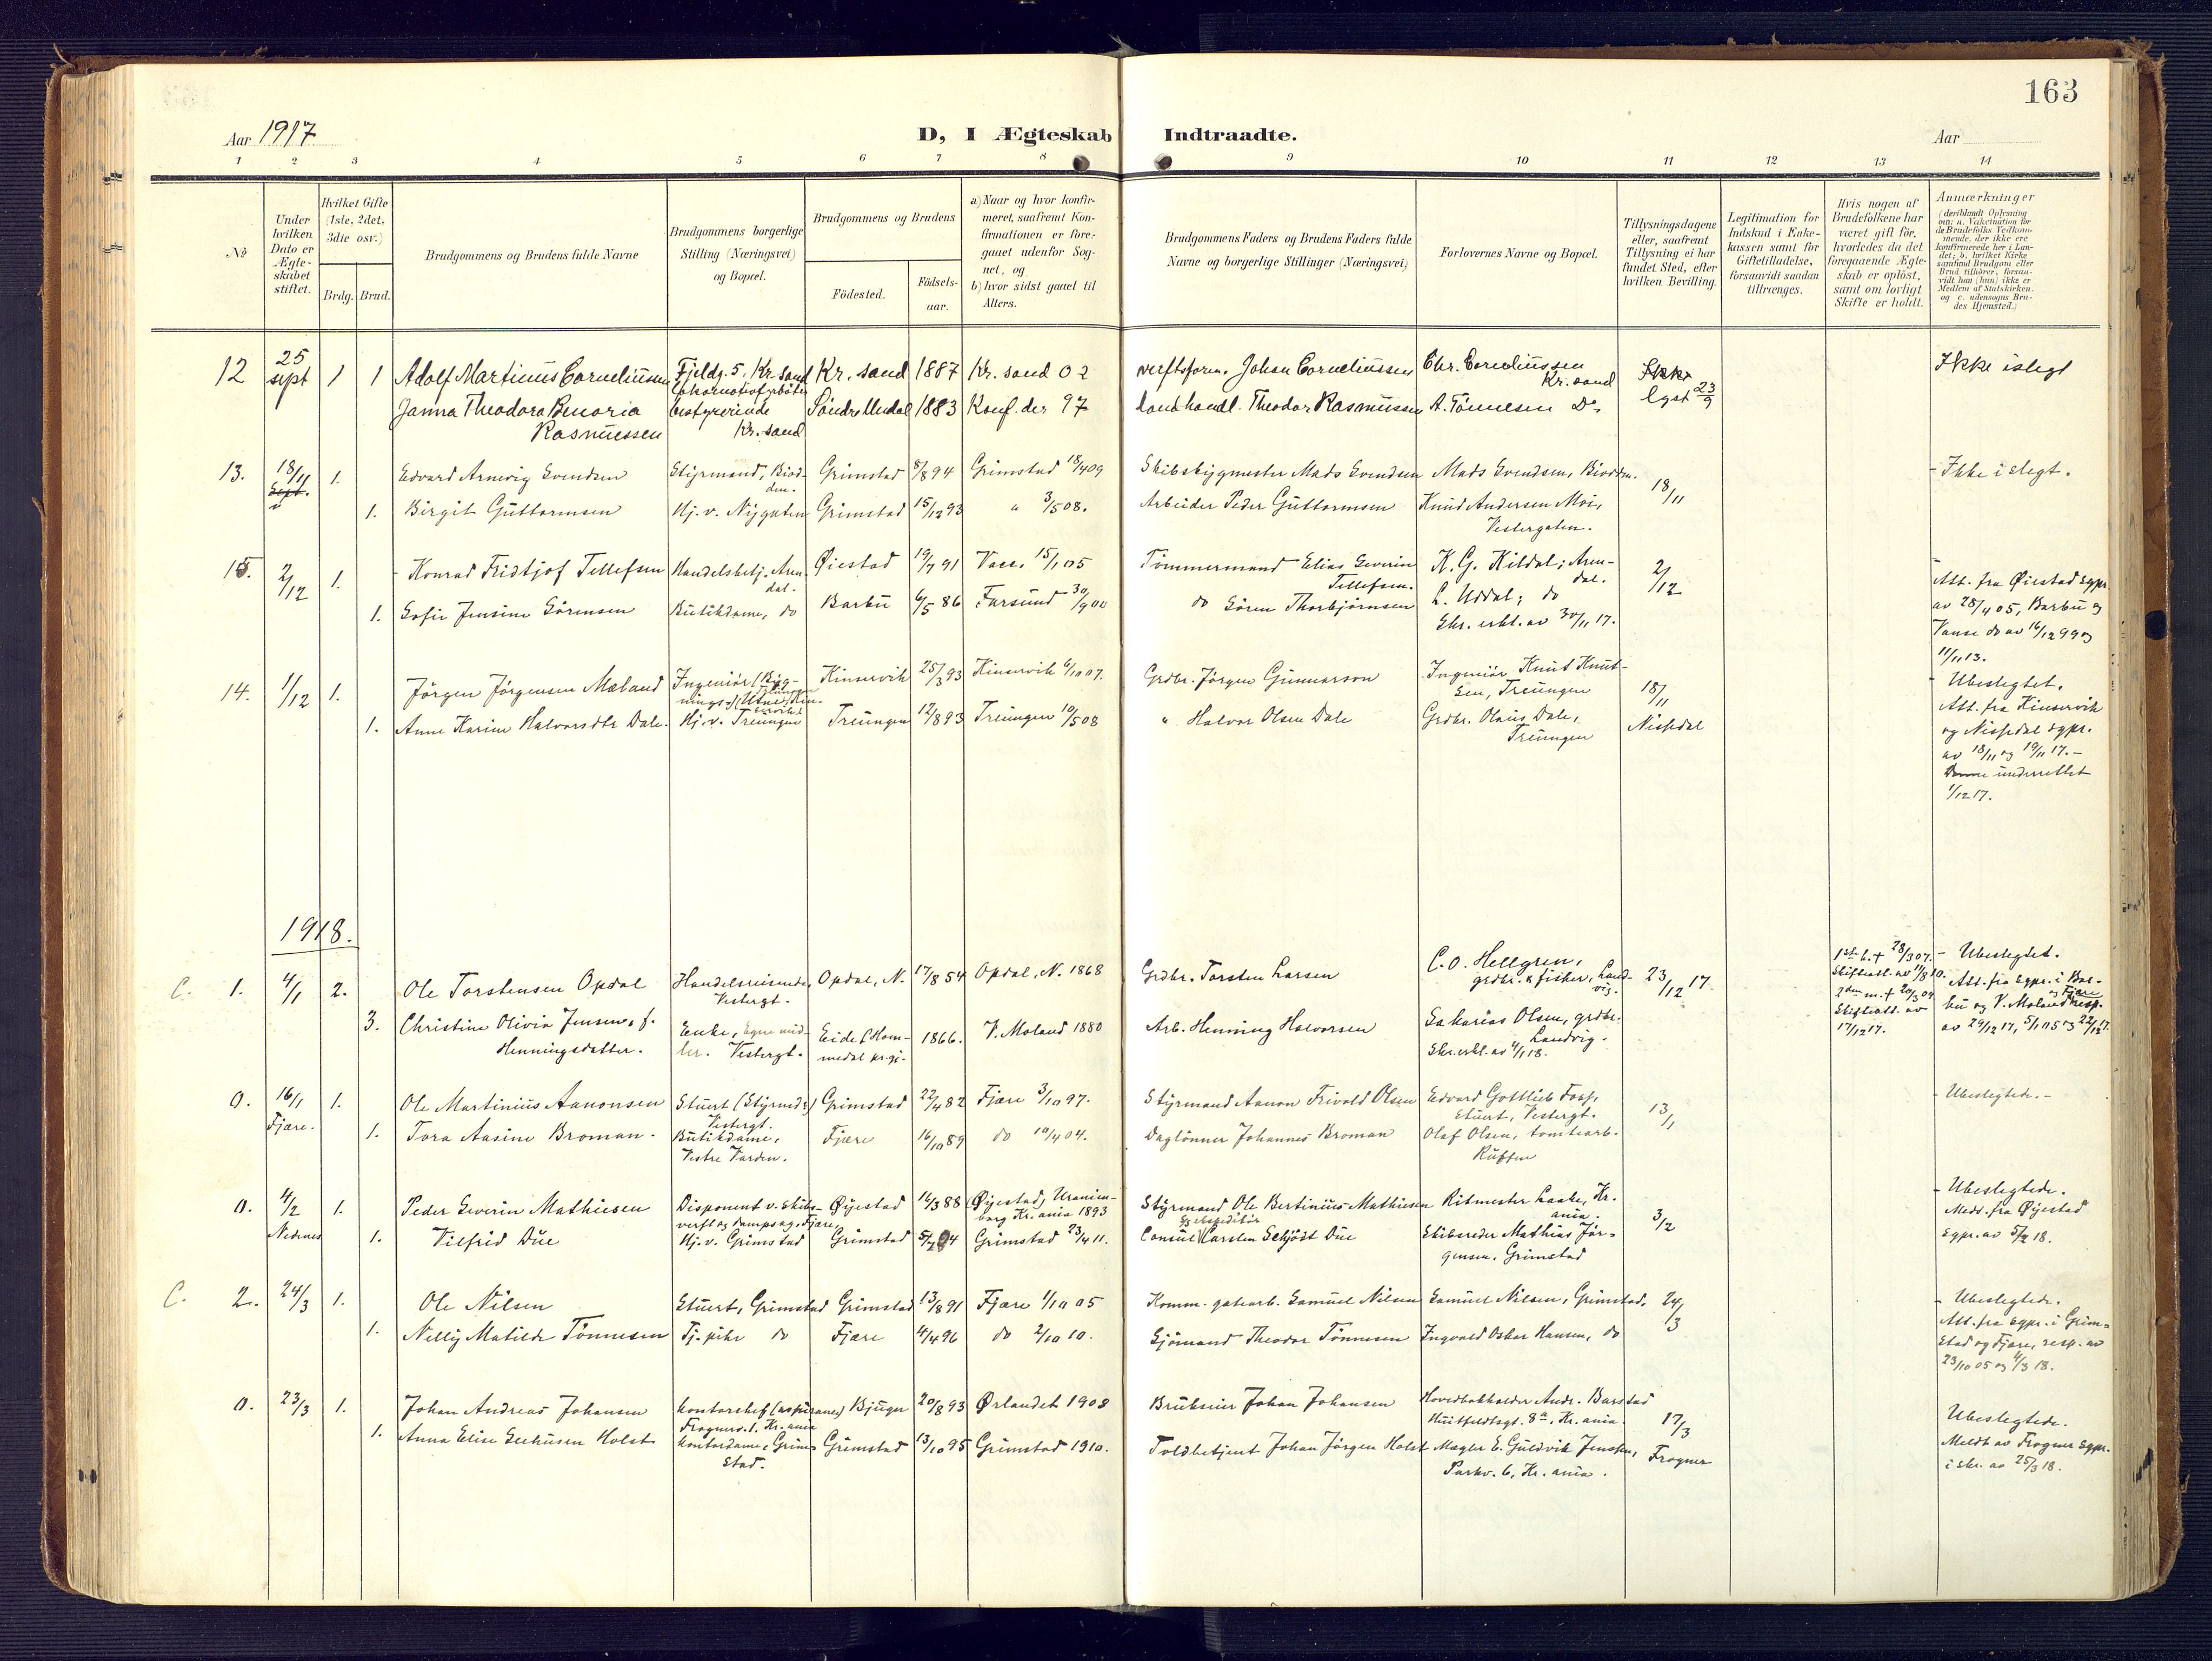 163
Aar 1917
D, I Ægteskab Indtraadte.
Aar
1 2 3 4 5 6 7 8 9 10 11 12 13 14
No
Under hvilken Dato er Ægteskabet stiftet.
Hvilket Gifte (1ste, 2det, 3die osv.)
Brdg. Brud.
Brudgommens og Brudens fulde Navne
Brudgommens borgerlige Stilling (Næringsvei) og Bopæl.
Brudgommens og Brudens
Fødested.
Fødsels-aar.
a) Naar og hvor konfirmeret, saafremt Konfirmationen er foregaaet udenfor Sognet, og b) hvor sidst gaaet til Alters.
Brudgommens Faders og Brudens Faders fulde Navne og borgerlige Stillinger (Næringsvei)
Forlovernes Navne og Bopæl.
Tillysningsdagene eller, saafremt Tillysning ei har fundet Sted, efter hvilken Bevilling.
Legitimation for Indskud i Enkekassen samt for Giftetilladelse, forsaavidt saadan tiltrænges.
Hvis nogen af Brudefolkene har været gift før, hvorledes da det foregaaende Ægteskab er opløst, samt om lovligt Skifte er holdt.
Anmærkninger
(deriblandt Oplysning om: a. Vakcination for de Brudefolks Vedkommende, der ikke ere konfirmerede her i Landet; b. hvilket Kirkesamfund Brudgom eller Brud tilhører, forsaavidt han (hun) ikke er Medlem af Statskirken. og c. udensogns Brudes Hjemsted.)
12 25 sept 1 1 Adolf Martinius Corneliussen Fjeldg. 5. Kr. sand Kr. sand 1887 Kr. sand 02 verftsform. Johan Corneliussen Chr. Corneliussen Kr. sand lyst 23/9 Ikke i slegt
Janna Theodora Benoria Rasmussen bestyrerinde Kr. sand Søndre Undal 1883 Konf. der 97 landhandl. Theodor Rasmussen A. Tønnesen Do
13. 18/11 1. Edvard Arnevig Svendsen Styrmand, Biodden. Grimstad 8/8 94 Grimstad 18/4 09 Skibsbygmester Mads Svendsen Mads Svendsen, Biodden. 18/11 - Ikke i slegt.
1. Birgit Guttormsen Hj. v. Nygaten Grimstad 15/12 93 " 3/5 08. Arbeider Peder Guttormsen Knud Andersen Moi, Vestergaten.
15. 2/12 1. Konrad Fridtjof Tellefsen Handelsbetj. Arendal. Øiestad 19/7 91 Vacc. 15/1 05 Tømmermand Elias Severin Tellefsen. K. G. Kildal; Arendal. 2/12
1. Sofie Jensine Sørensen Butikdame, do Barbu 6/5 86 Farsund 30/9 00 do Søren Thorbjørnsen L. Uddal; do
Skr. erkl. av 30/11 17.
Att. fra Øiestad sgpr. av 28/4 05, Barbu og Vanse do av 16/12 99 og 11/11 13.
14. 1/12 1. Jørgen Jørgensen Mæland Ingeniør Kinservik 25/3 93 Kinservik 6/10 07. Grdbr. Jørgen Gunnarson Ingeniør Knut Knutsen, Treungen 18/11 Nissedal
1. Anne Karine Halvorsdtr Dale. Hj. v. Treungen Treungen 12/8 93 Treungen 10/5 08 " Halvor Olsen Dale Grdbr. Olaus Dale, Treungen
- Ubeslegtet.
Att. fra Kinservik og Nissedal sgpr. av 18/11 og 19/11 17. -
underrettet 1/12 17.
1918.
C. 1. 4/1 2. Ole Torstensen Opdal Handelsreisende, Vestergt. Opdal, N. 17/8 54 Opdal, N. 1868 Grdbr. Torsten Larsen C. O. Hellgren, grdbr. & fisker, Landvig. 23/12 17.
3. Christine Olivia Jensen, f. Henningsdatter. Enke, egne midler. Vestergt. Eide (Hommedal pr.gj. 1866. V. Moland 1880 Arb. Henning Halvorsen Sakarias Olsen, grdbr. Landvig.
Skr. erkl. av 4/1 18.
1ste h. † 28/3 07. Skifteatt. av 11/8 10. 2den m. † 20/3 04 Skifteatt. av 17/12 17.
- Ubeslegtet.
Att. fra sgpr. i Barbu og V. Moland og Fjære resp. av 29/12 17, 5/1 15 og 22/12 17.
0. 16/1 Fjære. 1. Ole Martinius Aanonsen Stuert (Styrmd.) Vestergt. Grimstad 22/4 82 Fjære 3/10 97. Styrmand Aanon Trivold Olsen Edvard Gottlieb Foss, Stuert, Vestergt. 13/1 - Ubeslegtede. -
1. Tora Aasine Broman. Butikdame, Vestre Varden. Fjære 16/10 89 do 10/4 04. Daglønner Johannes Broman Olaf Olsen, tomtearb. Kuffen
0. 4/2 Nedenes 1. Peder Severin Mathiesen Disponent v. Skibsverft og dampsag, Fjære Øyestad 16/3 88 Øyestad, Uranienborg Kr. ania 1893 Styrmand Ole Bertinius Mathiesen Ritmester Laake, Kr. ania. 3/2
1. Vilfrid Due Hj. v. Grimstad Grimstad 5/7 94 Grimstad 23/4 11. Consul Carsten Schjødt Due Skibsreder Mathias Jørgensen, Grimstad
- Ubeslegtede.
Medd. fra Øyestad sgpr. av 5/2 18.
C. 2. 24/3 1. Ole Nilsen Stuert, Grimstad Grimstad 13/8 91 Fjære 1/10 05 Komm. gatearb. Samuel Nilsen Samuel Nilsen, Grimstad. 24/3
1. Nelly Matilde Tønnesen Tj. pike do Fjære 4/4 96 do 2/10 10. Sjømand Theodor Tønnesen Ingvald Oskar Hansen, do
- Ubeslegtede.
Att. fra sgpr. i Grimstad og Fjære, resp. av 23/10 05 og 4/3 18.
0. 23/3 1. Johan Andreas Johansen kontorchef Frognerv. 1. Kr. ania Bjugn 20/8 93 Ørlandet 1908 Bruksier Johan Johansen Hovedbokholder Andr. Barstad Huitfeldtsgt. 8a, Kr. ania. 17/3 Frogner
1. Anna Elise Seehusen Holst kontordame, Grimstad. Grimstad 13/10 95 Grimstad 1910. Toldbetjent Johan Jørgen Holst Mægler E. Guldvik Jenssen, Parkv. 6, Kr. ania.
Ubeslegtede.
Meldt av Frogner sgpr. i skr. av 25/3 18.